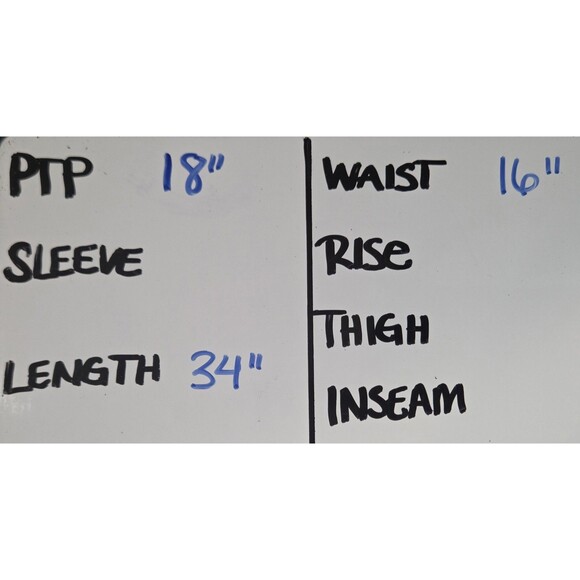 PTP 18"
SLEEVE
LENGTH 34"
WAIST 16"
RISE
THIGH
INSEAM